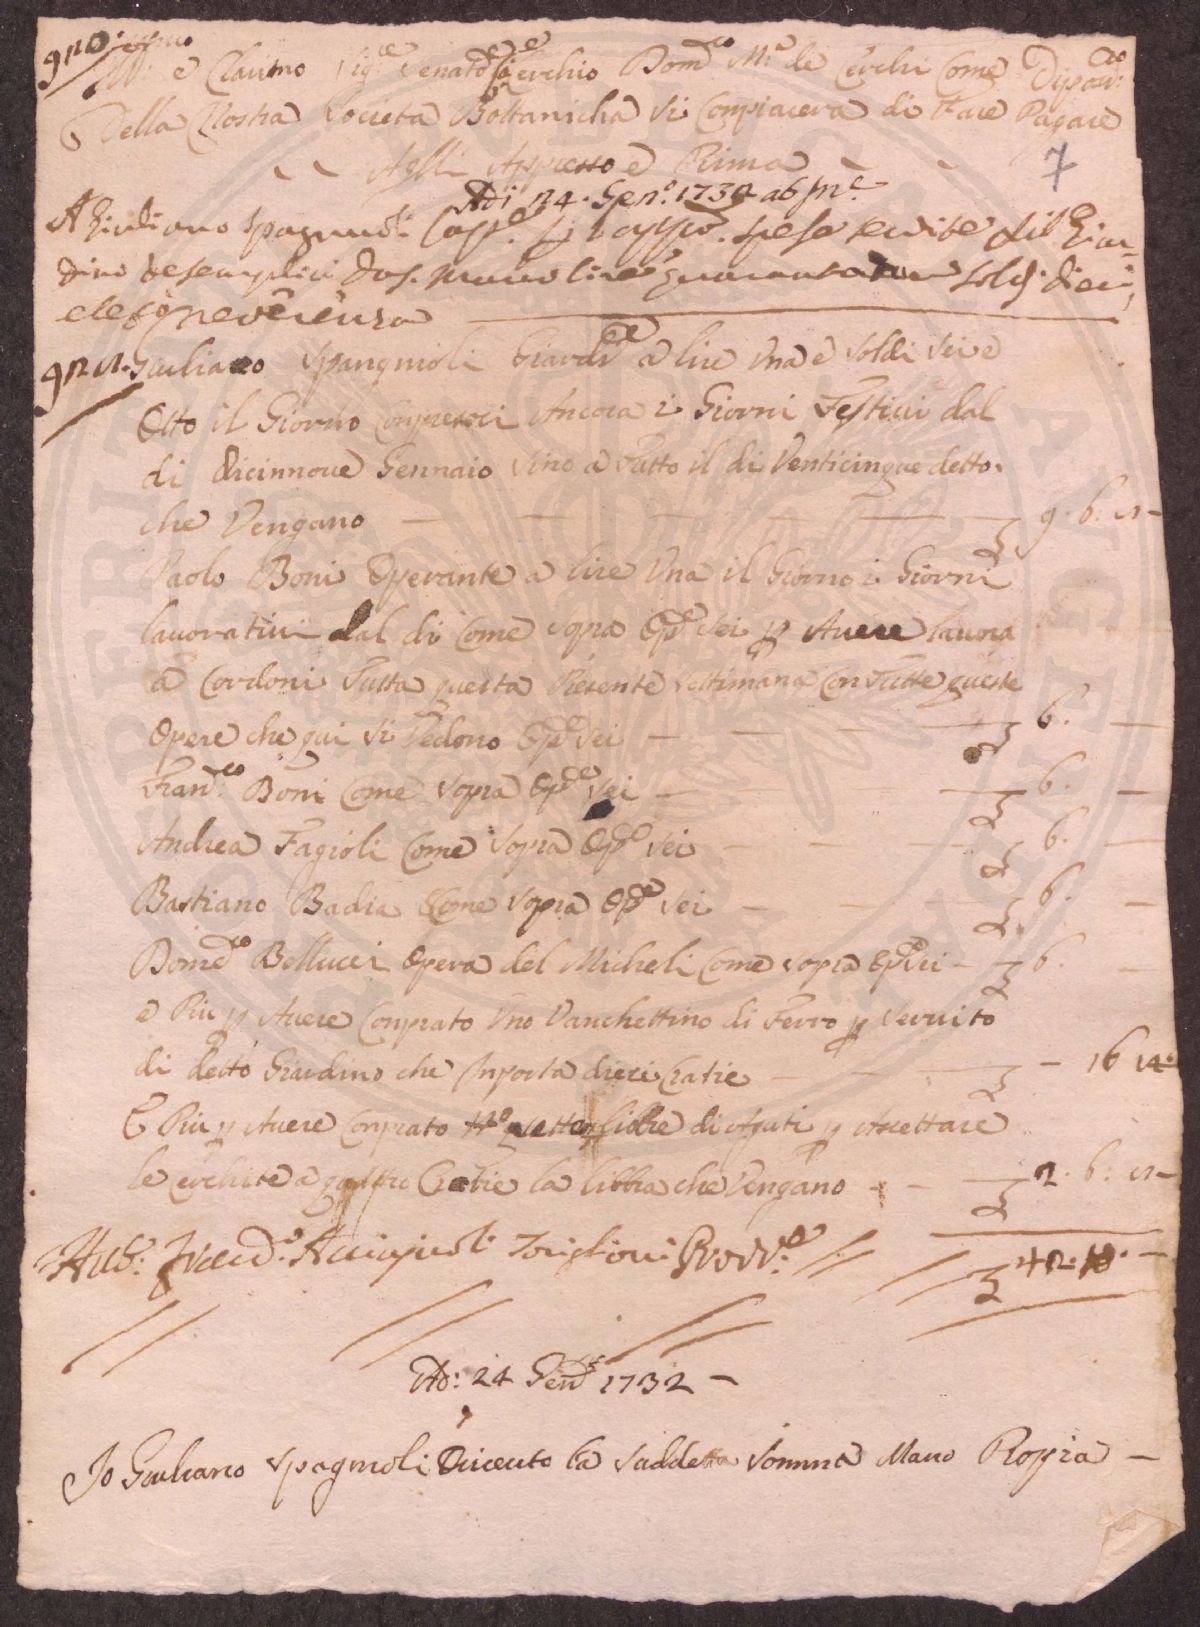 Ill: e Clarimo Sig:re Senato:re Cerchio Dom:co M:a de Cerchi Come Diposit:
Della Nostra Società Bottanicha Si Conpiacera di Fare Pagare
Agli Appresso e Prima
7
Adi 24. Gen:o 1732 ab In:e
A Giuliano Spagnuoli Cass:e p rappo: spese seguite del Giar-
dino de semplici dos. Numo lire quarantadue soldi dieci,
e le fo reverenza
Giuliano Spangnioli Giard:re a lire Una e Soldi Sei e
Otto il Giorno Conpresoci Ancora i Giorni Festivi dal
di dicinnove Gennaio Sino a tutto il di Venticinque detto.
che Vengano 9. 6.
Paolo Boni Operante a lire Una il Giorno i Giorni
lavorativi dal di Come Sopra Op:e Sei p Avere lavora
a Cordoni Tutta questa Presente Settimana Con Tutte queste
Opere che qui Si Vedono Op:e Sei 6. —
Fran:co Boni Come Sopra Op:e Sei 6. —
Andrea Fagioli Come Sopra Op:e Sei 6. —
Bastiano Badia Come Sopra Op:e Sei 6. —
Dome:co Bellucci Opera del Micheli Come Sopra Op:e Sei 6. —
e Piu p Avere Conprato Uno Vanchettino di Ferro p Servito
di detto Giardino che Inporta dieci Cratie — 16 4
E Piu p Avere Conprato N:o Sette libbre di Aguti p Assettare
le Cerchite a quattro Cratie la libbra che Vengano 2. 6:
Acciajuoli Torigliani Provv:e 42. 10. —
Ad: 24 Gen: 1732 —
Io Giuliano Spagnioli Riceuto la Suddetta Somma Mano Propia —